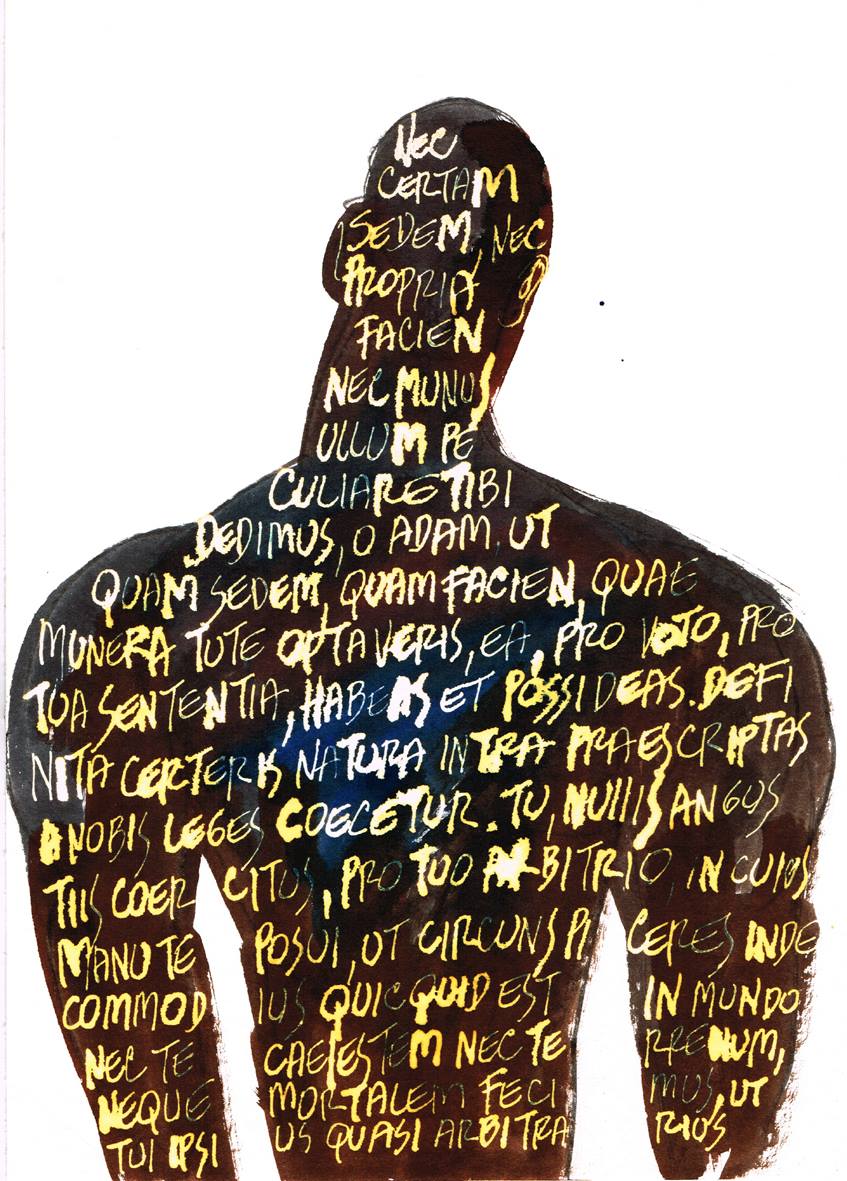 NEC
CERTAM
SEDEM, NEC
PROPRIA
FACIEN
NEC MUNUS
ULLUM PE
CULIARE TIBI
DEDIMUS, O ADAM, UT
QUAM SEDEM, QUAM FACIEN, QUAE
MUNERA TUTE OPTAVERIS, EA, PRO VOTO, PRO
TUA SENTENTIA, HABEAS ET POSSIDEAS. DEFI
NITA CERTERIS NATURA INTRA PRAESCRIPTAS
A NOBIS LEGES COECETUR. TU, NULLIS ANGUS
TIIS COER CITUS, PRO TUO ARBITRIO, IN CUIUS
MANU TE POSUI, UT CIRCUNSPI CERES INDE
COMMOD IUS QUICQUID EST IN MUNDO
NEC TE CAELESTEM NEC TE RRENUM,
NEQUE MORTALEM FECI MUS, UT
TUI IPSI US QUASI ARBITRA RIUS